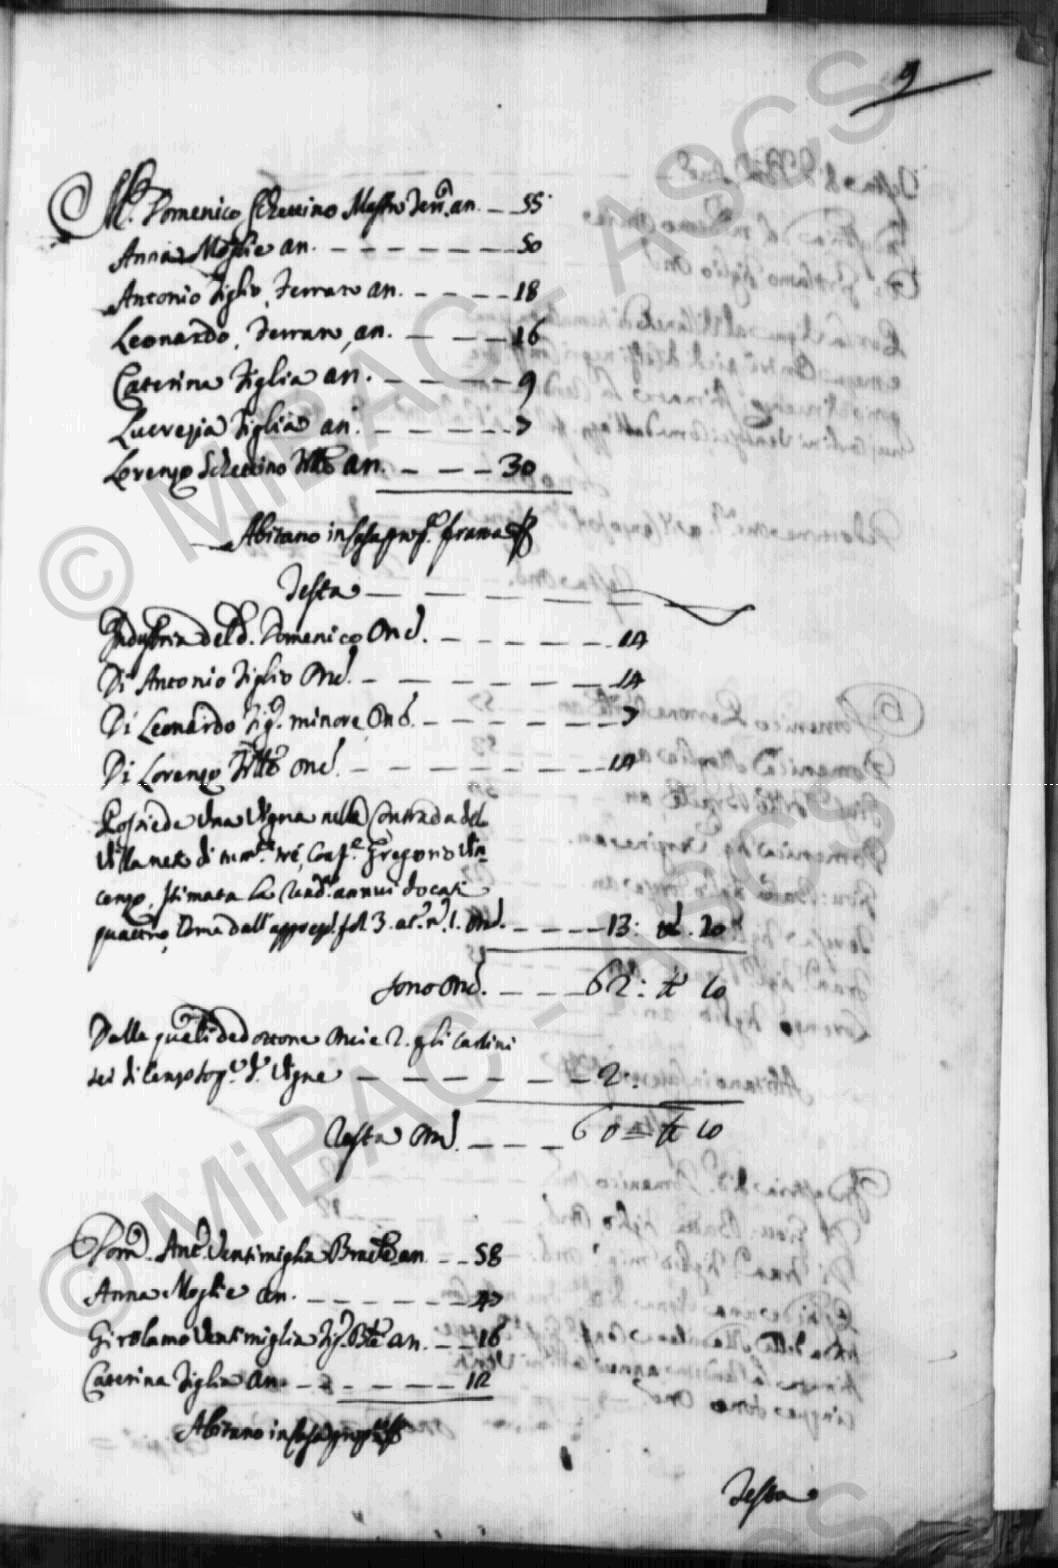 9
M.° Domenico Schettino Mastro Ferr.° an. — 55
Anna Moglie an. — — — — — — 50
Antonio figlio, ferraro an. — — — — 18
Leonardo, ferraro, an. — — — 16
Caterina figlia an. — — — — 9
Lucrezia figlia an. — — — — — 7
Lorenzo Schettino an. — — — 30
Abitano in casa
Testa — — — — — —
Industria del d. Domenico Onc. — — — — — 14
Di Antonio figlio Onc. — — — — — — — 14
Di Leonardo fig.° minore, Onc. — — — — — 7
Di Lorenzo Onc. — — — — — — — 14
Possiede una Vigna nella Contrada del
di tre, Conf.e Gregorio
stimata la rend. annui docati
quattro, come dall'apprezzo fol. 3. Onc. — — — — 13: 20
sono Onc. — — — 62: 10
Dalle quali dedottone Oncie 2. gli Carlini
sei di Censo sop.a d.a Vigna — — — — — — 2.
Resta Onc. — — — 60 = 10
Dom.° Ant.° Ventimiglia an. — — 58
Anna Moglie an. — — — — — 47
Girolamo Ventimiglia an. — — 16
Caterina figlia an. — — — — — 12
Abitano in casa
Testa
© MiBAC - ASCS
© MiBAC - ASCS